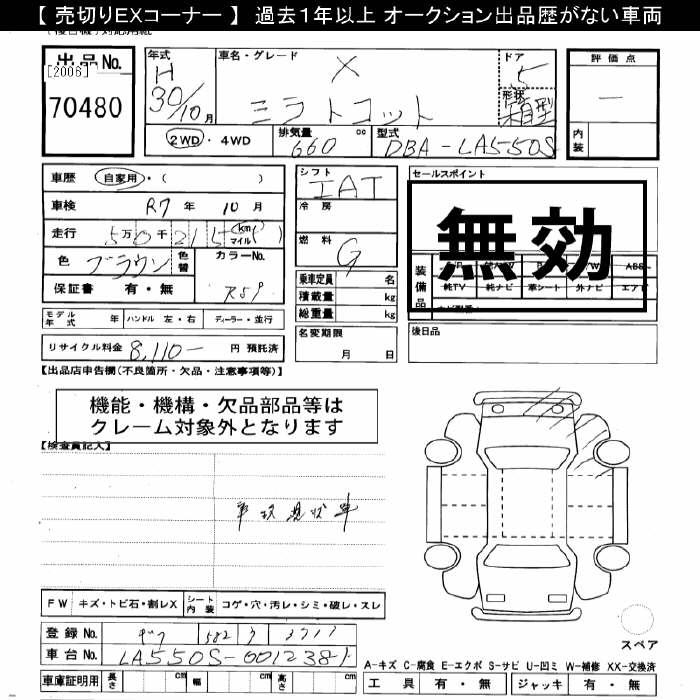 【 売切りEXコーナー 】 過去１年以上 オークション出品歴がない車両
出品 No.
[2006]
70480
年式
H
30/10月
車名・グレード
X
ミラトコット
ドア
5
形状
箱型
評価点
内装
2WD・4WD
排気量
660
cc
型式
DBA-LA550S
車歴 自家用・( )
車検 R7 年 10 月
走行 5万0千215 (km マイル)( )
色 ブラウン 色替 カラーNo.
保証書 有・無 R59
モデル年式 年 ハンドル 左・右 ディーラー・並行
リサイクル料金 8,110- 円 預託済
シフト
IAT
冷房
燃料 G
乗車定員 名
積載量 kg
総重量 kg
名変期限
月 日
セールスポイント
無効
装備品
純TV 純ナビ 革シート 外ナビ エアB
後日品
【出品店申告欄(不良箇所・欠品・注意事項等)】
機能・機構・欠品部品等は
クレーム対象外となります
【検査員記入】
車状現状車
FW キズ・トビ石・割レX シート内装 コゲ・穴・汚レ・シミ・破レ・スレ
登録 No. 582
車台 No. LA550S-0012381
車庫証明用 長さ cm 幅 cm 高さ cm
スペア
A-キズ C-腐食 E-エクボ S-サビ U-凹ミ W-補修 XX-交換済
工具 有・無 ジャッキ 有・無